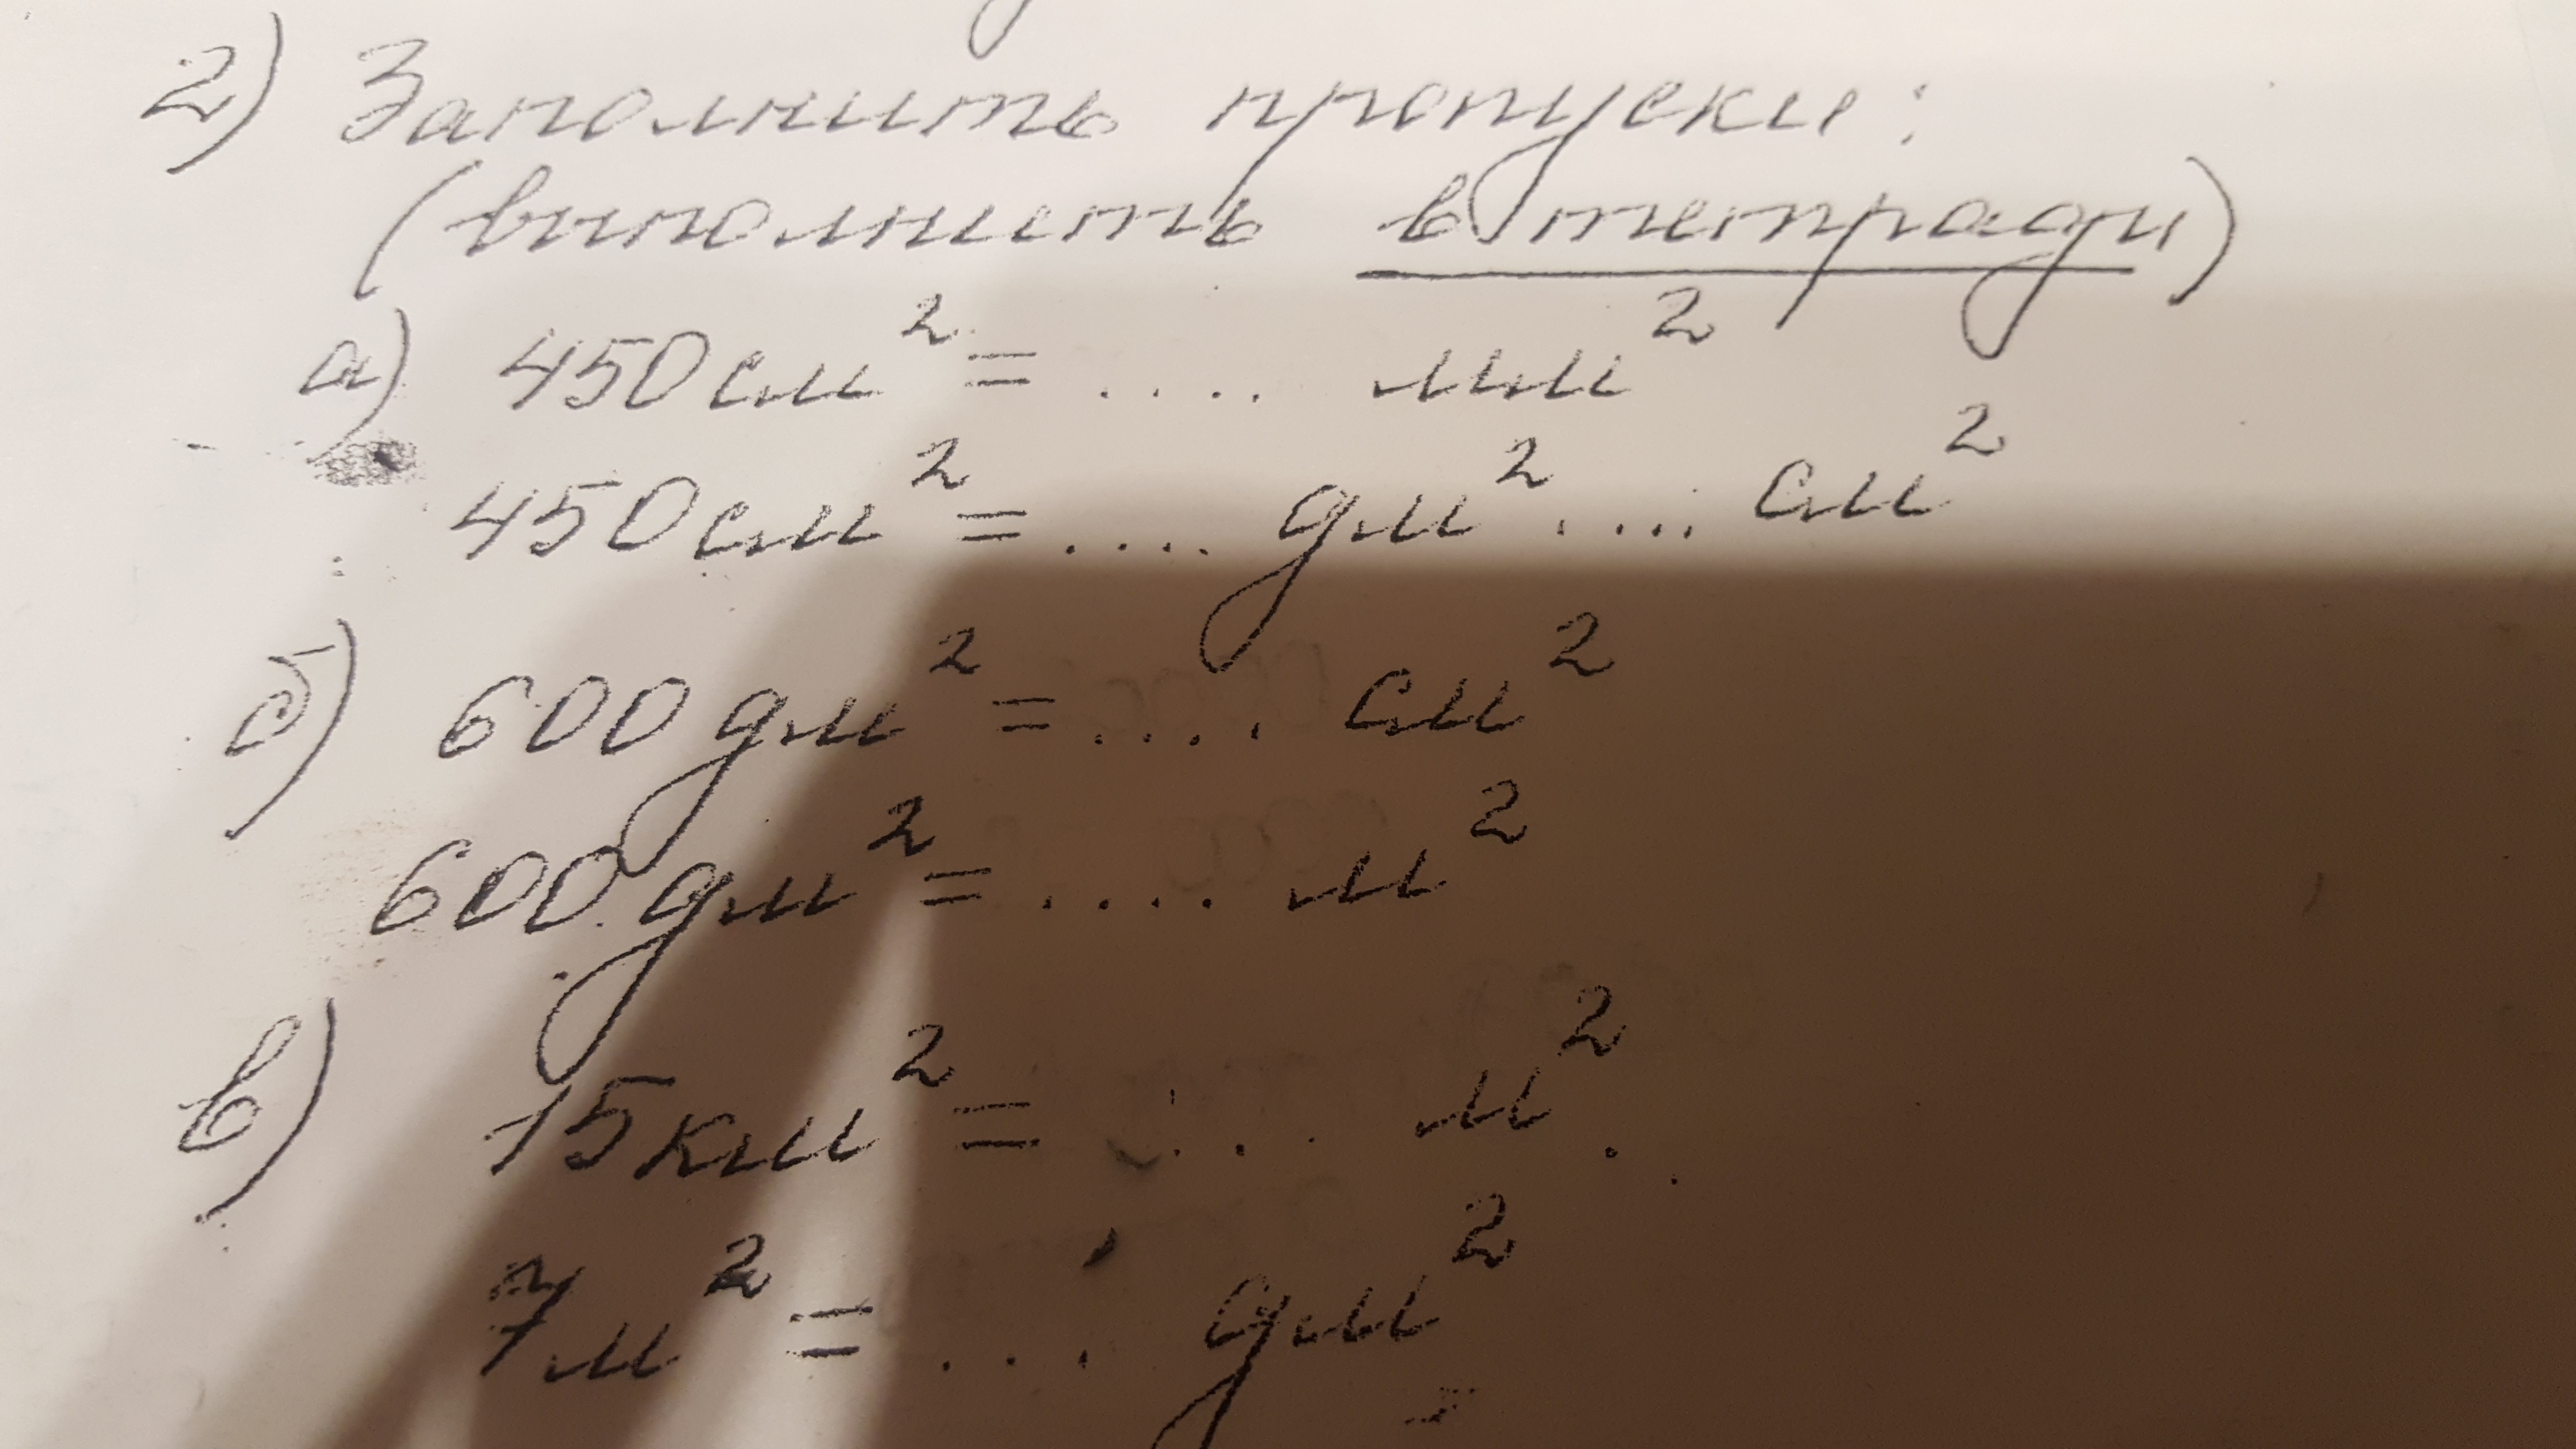 2) Заполнить пропуски:
(выполнить в тетради)
а) 450 см² = .... мм²
450 см² = .... дм² .... см²
б) 600 дм² = .... см²
600 дм² = .... м²
в) 15 км² = .... м²
7 м² = ... дм²